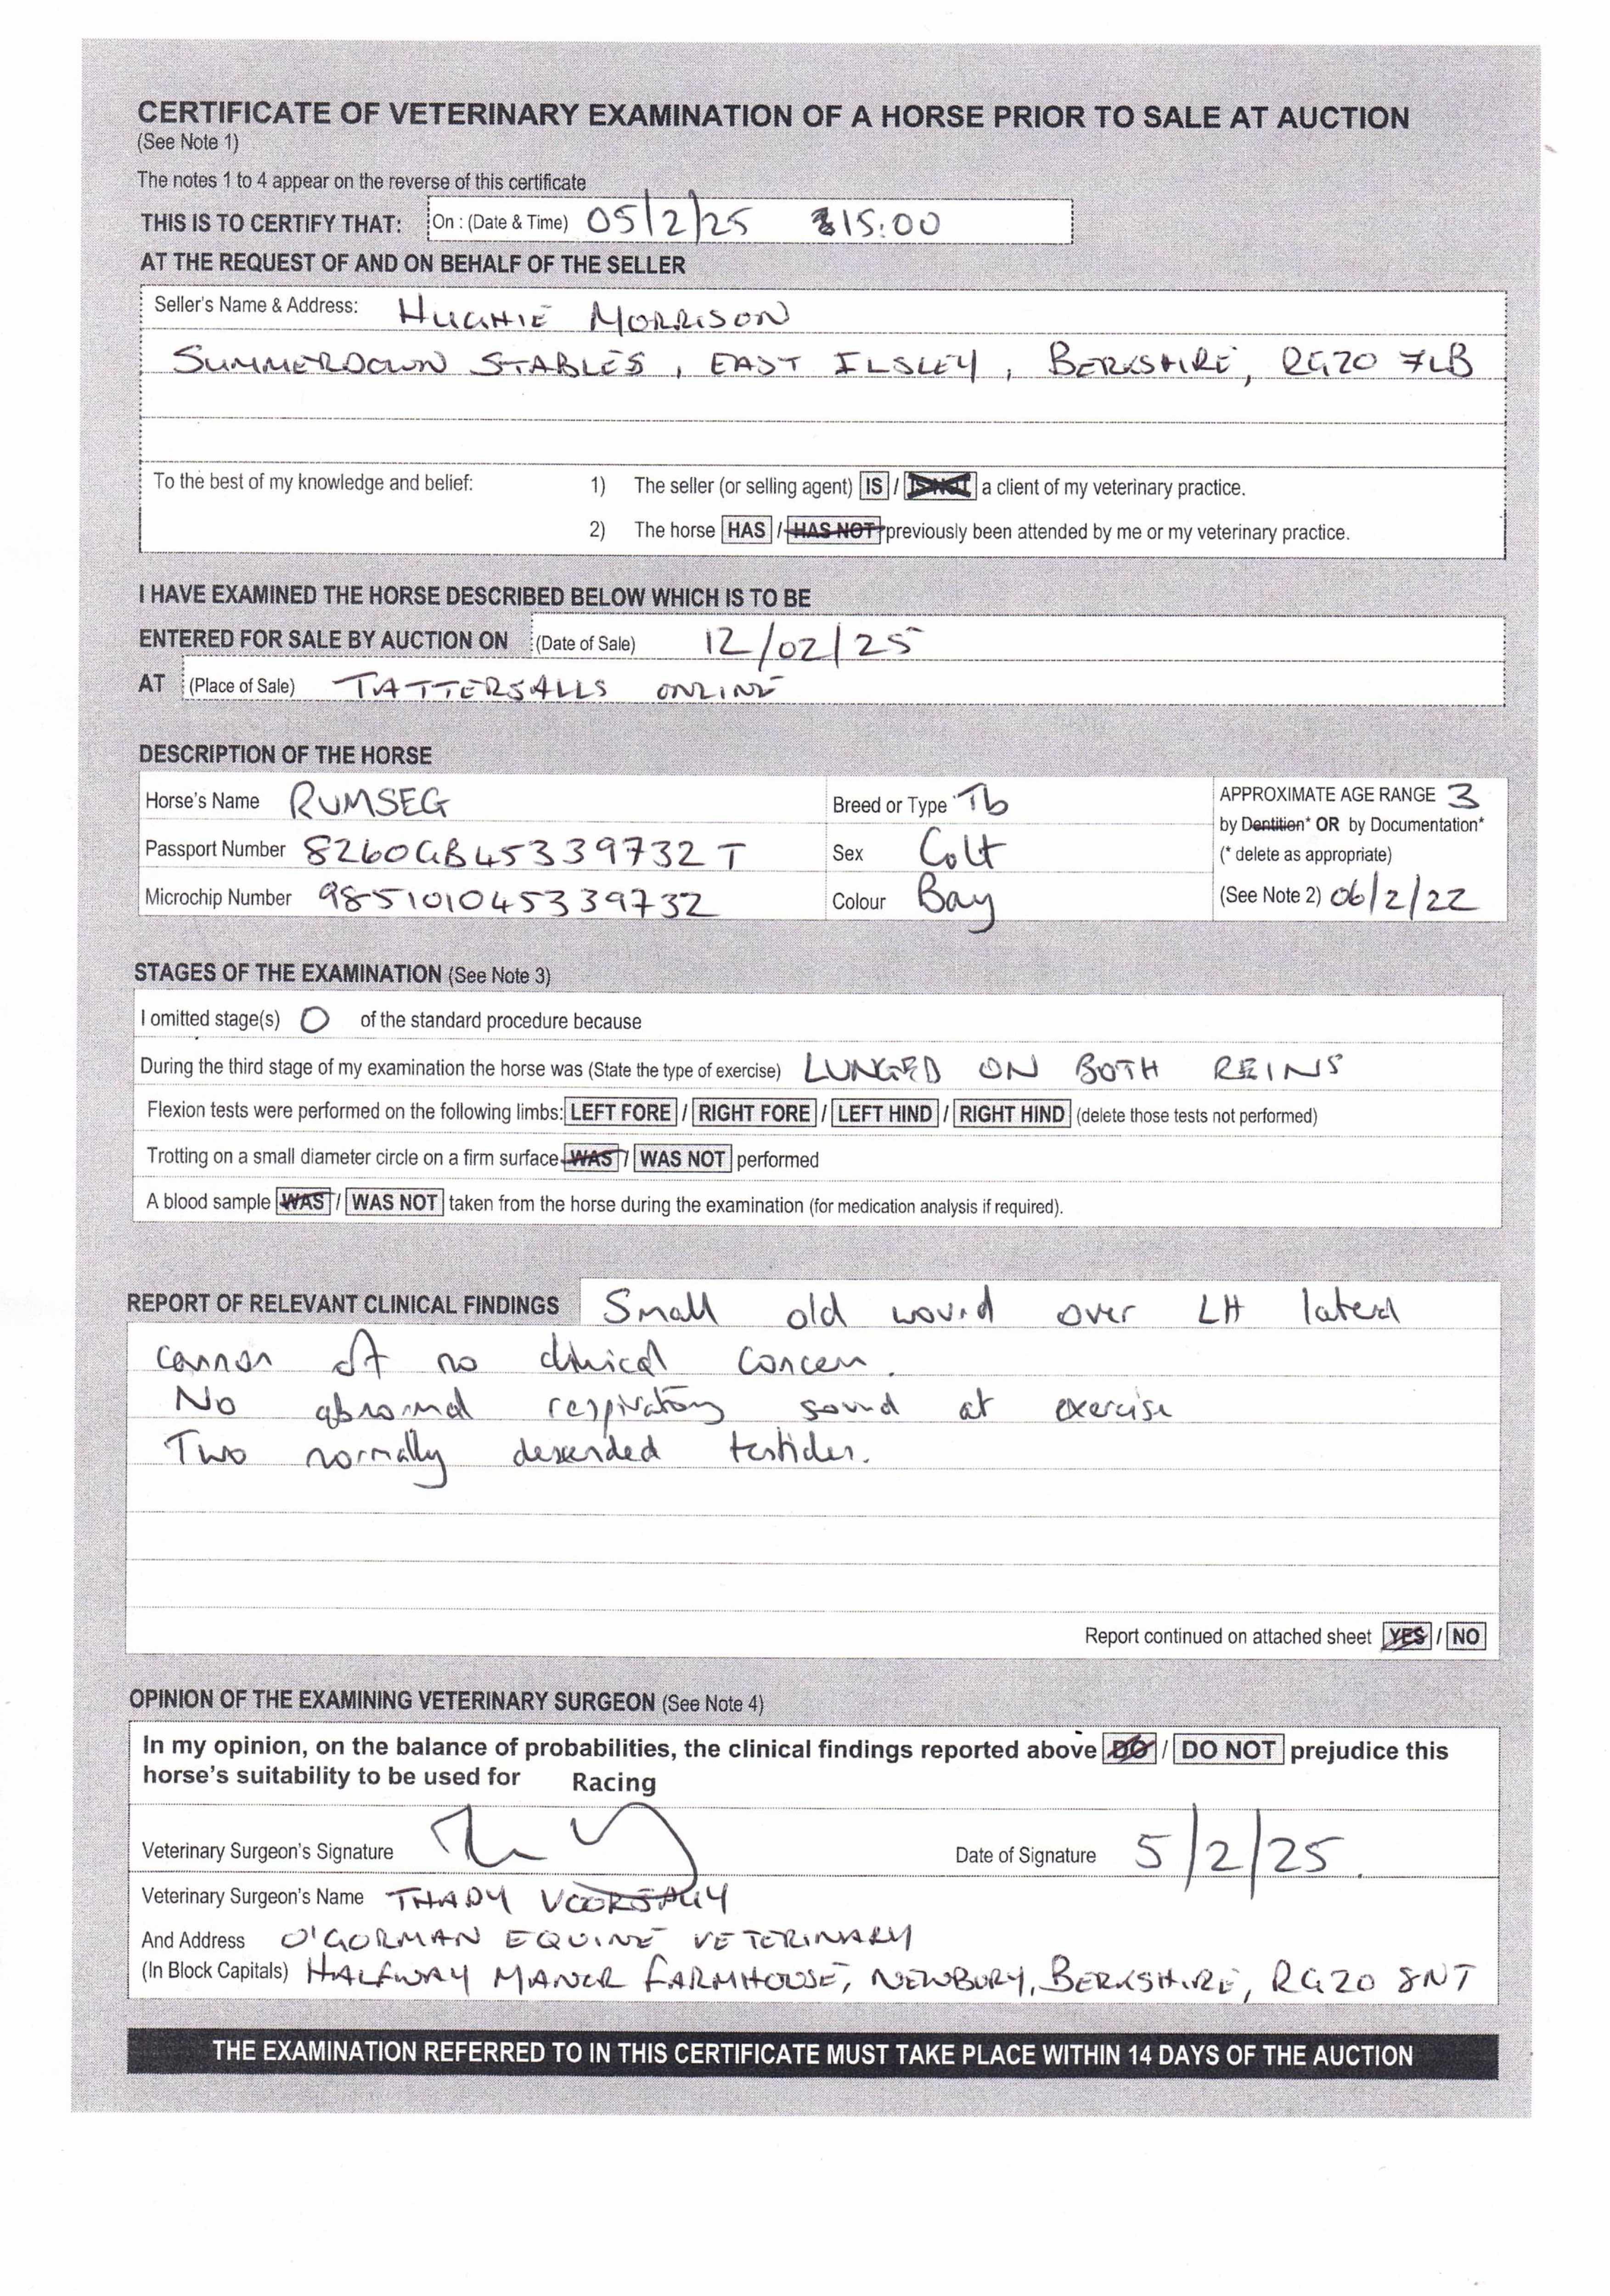 CERTIFICATE OF VETERINARY EXAMINATION OF A HORSE PRIOR TO SALE AT AUCTION
(See Note 1)
The notes 1 to 4 appear on the reverse of this certificate
THIS IS TO CERTIFY THAT: On : (Date & Time) 05/2/25 15:00
AT THE REQUEST OF AND ON BEHALF OF THE SELLER
Seller's Name & Address: HUGHIE MORRISON
SUMMERDOWN STABLES, EAST ILSLEY, BERKSHIRE, RG20 7LB
To the best of my knowledge and belief: 1) The seller (or selling agent) IS / IS NOT a client of my veterinary practice.
2) The horse HAS / HAS NOT previously been attended by me or my veterinary practice.
I HAVE EXAMINED THE HORSE DESCRIBED BELOW WHICH IS TO BE
ENTERED FOR SALE BY AUCTION ON (Date of Sale) 12/02/25
AT (Place of Sale) TATTERSALLS ONLINE
DESCRIPTION OF THE HORSE
Horse's Name RUMSEG Breed or Type Tb APPROXIMATE AGE RANGE 3
by Dentition* OR by Documentation*
Passport Number 8260GB45339732T Sex Colt (* delete as appropriate)
Microchip Number 985101045339732 Colour Bay (See Note 2) 06/2/22
STAGES OF THE EXAMINATION (See Note 3)
I omitted stage(s) 0 of the standard procedure because
During the third stage of my examination the horse was (State the type of exercise) LUNGED ON BOTH REINS
Flexion tests were performed on the following limbs: LEFT FORE / RIGHT FORE / LEFT HIND / RIGHT HIND (delete those tests not performed)
Trotting on a small diameter circle on a firm surface WAS / WAS NOT performed
A blood sample WAS / WAS NOT taken from the horse during the examination (for medication analysis if required).
REPORT OF RELEVANT CLINICAL FINDINGS Small old wound over LH lateral
cannon of no clinical concern.
No abnormal respiratory sound at exercise
Two normally descended testicles.
Report continued on attached sheet YES / NO
OPINION OF THE EXAMINING VETERINARY SURGEON (See Note 4)
In my opinion, on the balance of probabilities, the clinical findings reported above DO / DO NOT prejudice this
horse's suitability to be used for Racing
Veterinary Surgeon's Signature Date of Signature 5/2/25
Veterinary Surgeon's Name THADY
And Address O'GORMAN EQUINE VETERINARY
(In Block Capitals) HALFWAY MANOR FARMHOUSE, NEWBURY, BERKSHIRE, RG20 8NT
THE EXAMINATION REFERRED TO IN THIS CERTIFICATE MUST TAKE PLACE WITHIN 14 DAYS OF THE AUCTION